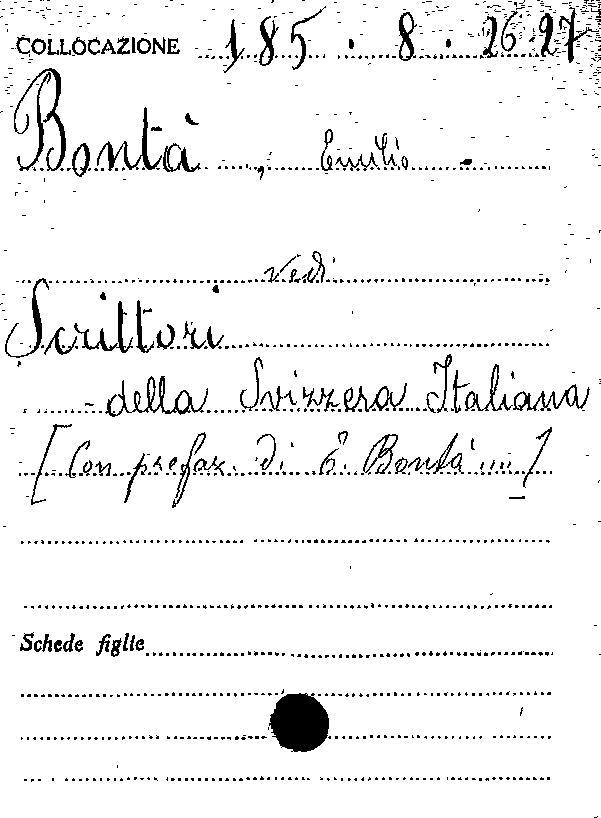 COLLOCAZIONE 185.8.26-27
Bontà, Emilio -
vedi
Scrittori
- della Svizzera Italiana
[Con prefaz. di E. Bontà ....]
Schede figlie